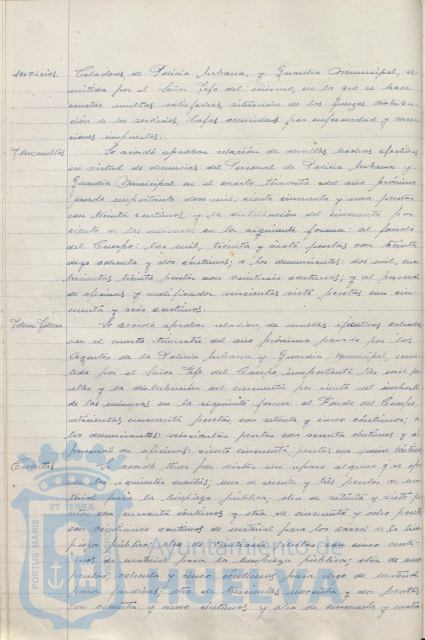 servicios. Celadores de Policía Urbana, y Guardia Municipal, re-
mitida por el Señor Jefe del mismo, en la que se hace
constar multas satisfechas, situación de las fuerzas, distribu-
ción de los servicios, bajas ocurridas por enfermedad y correc-
ciones impuestas.
Idem; multas Se acordó aprobar relación de multas hechas efectivas
en virtud de denuncias del Personal de Policía Urbana y
Guardia Municipal en el cuarto trimestre del año próximo
pasado importante doce mil, ciento cincuenta y una pesetas
con treinta céntimos y la distribución del cincuenta por
ciento de las mismas en la siguiente forma: al fondo
del Cuerpo: tres mil, treinta y siete pesetas con treinta
digo ochenta y dos céntimos; a los denunciantes: dos mil,
trescientas treinta pesetas con veintiseis céntimos; y al personal
de oficinas y notificador setecientas siete pesetas con cin-
cuenta y seis céntimos.
Idem Idem Se acordó aprobar relación de multas efectivas cobradas
en el cuarto trimestre del año próximo pasado por los
Agentes de la Policía Urbana y Guardia Municipal, remi-
tida por el Señor Jefe del Cuerpo, importante tres mil pe-
setas y la distribución del cincuenta por ciento del importe
de las mismas en la siguiente forma: al Fondo del Cuerpo,
setecientas cincuenta pesetas, con setenta y cinco céntimos; a
los denunciantes: seiscientas pesetas con sesenta céntimos y al
personal de oficinas: ciento cincuenta pesetas con quince céntimos
Cuentas Se acordó
las siguientes cuentas: una de sesenta y tres pesetas de ma-
terial para la limpieza pública; otra de setenta y siete pe-
setas con cuarenta céntimos y otra de cincuenta y ocho pesetas
con veinticinco céntimos de material para los carros de la lim-
pieza pública; otra de pesetas con cinco cénti-
mos de material para la limpieza pública; otra de
pesetas, ochenta y cinco céntimos para digo de material
para jardines; otra de trescientas noventa y dos pesetas
con ochenta y cinco céntimos y otra de cincuenta y cuatro
PORTUS MARIS
ET TERRAE
CUSTODIA
Ayuntamiento de
HUELVA